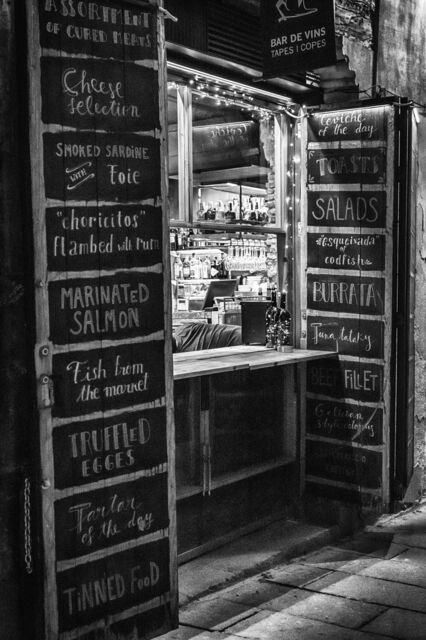 ASSORTMENT
OF CURED MEATS
Cheese
selection
SMOKED SARDINE
WITH Foie
"choricitos"
flambed with rum
MARINATED
SALMON
Fish from
the market
TRUFFLED
EGGES
Tartar
of the day
TINNED FOOD
BAR DE VINS
TAPES I COPES
Ceviche
of the day
TOASTS
SALADS
"esqueixada"
of codfish
BURRATA
Tuna tataky
BEEF FILLET
Galician
style